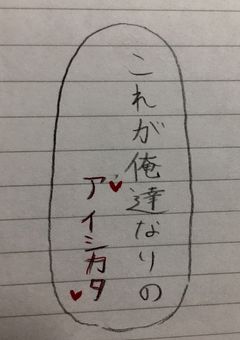 これが俺達なりの
♥アイシカタ♥